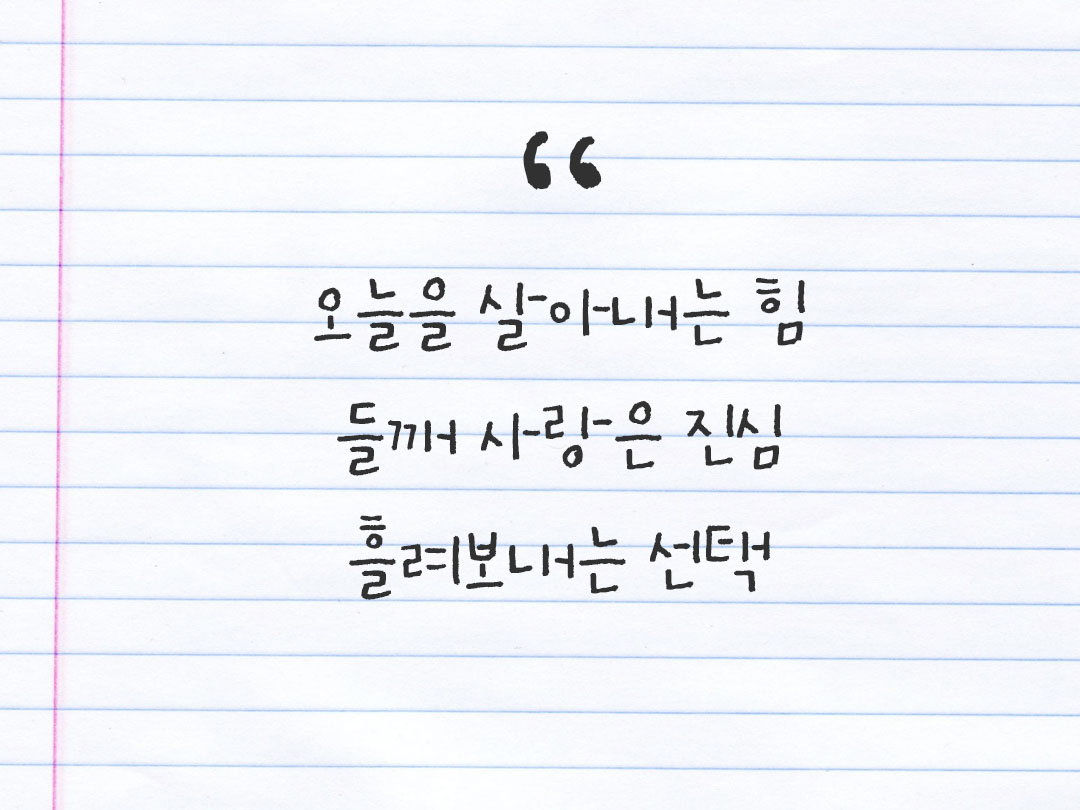 “
오늘을 살아내는 힘
들깨 사랑은 진심
흘려보내는 선택